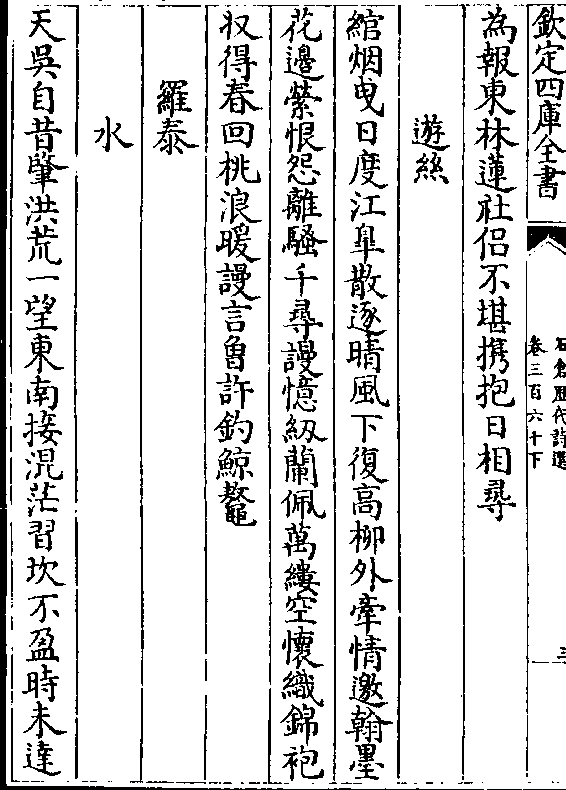 欽定四庫全書
石倉歷代詩選
卷三百六十下
三
為報東林蓮社侣不堪攜抱日相尋
遊絲
綰烟曳日度江臯散逐晴風下復高柳外牽情邀翰墨
花邊縈恨怨離騷千尋謾憶紉蘭佩萬縷空懷織錦袍
収得春回桃浪暖謾言魯許釣鯨鰲
羅泰
水
天吳自昔肇洪荒一望東南接混茫習坎不盈時未達